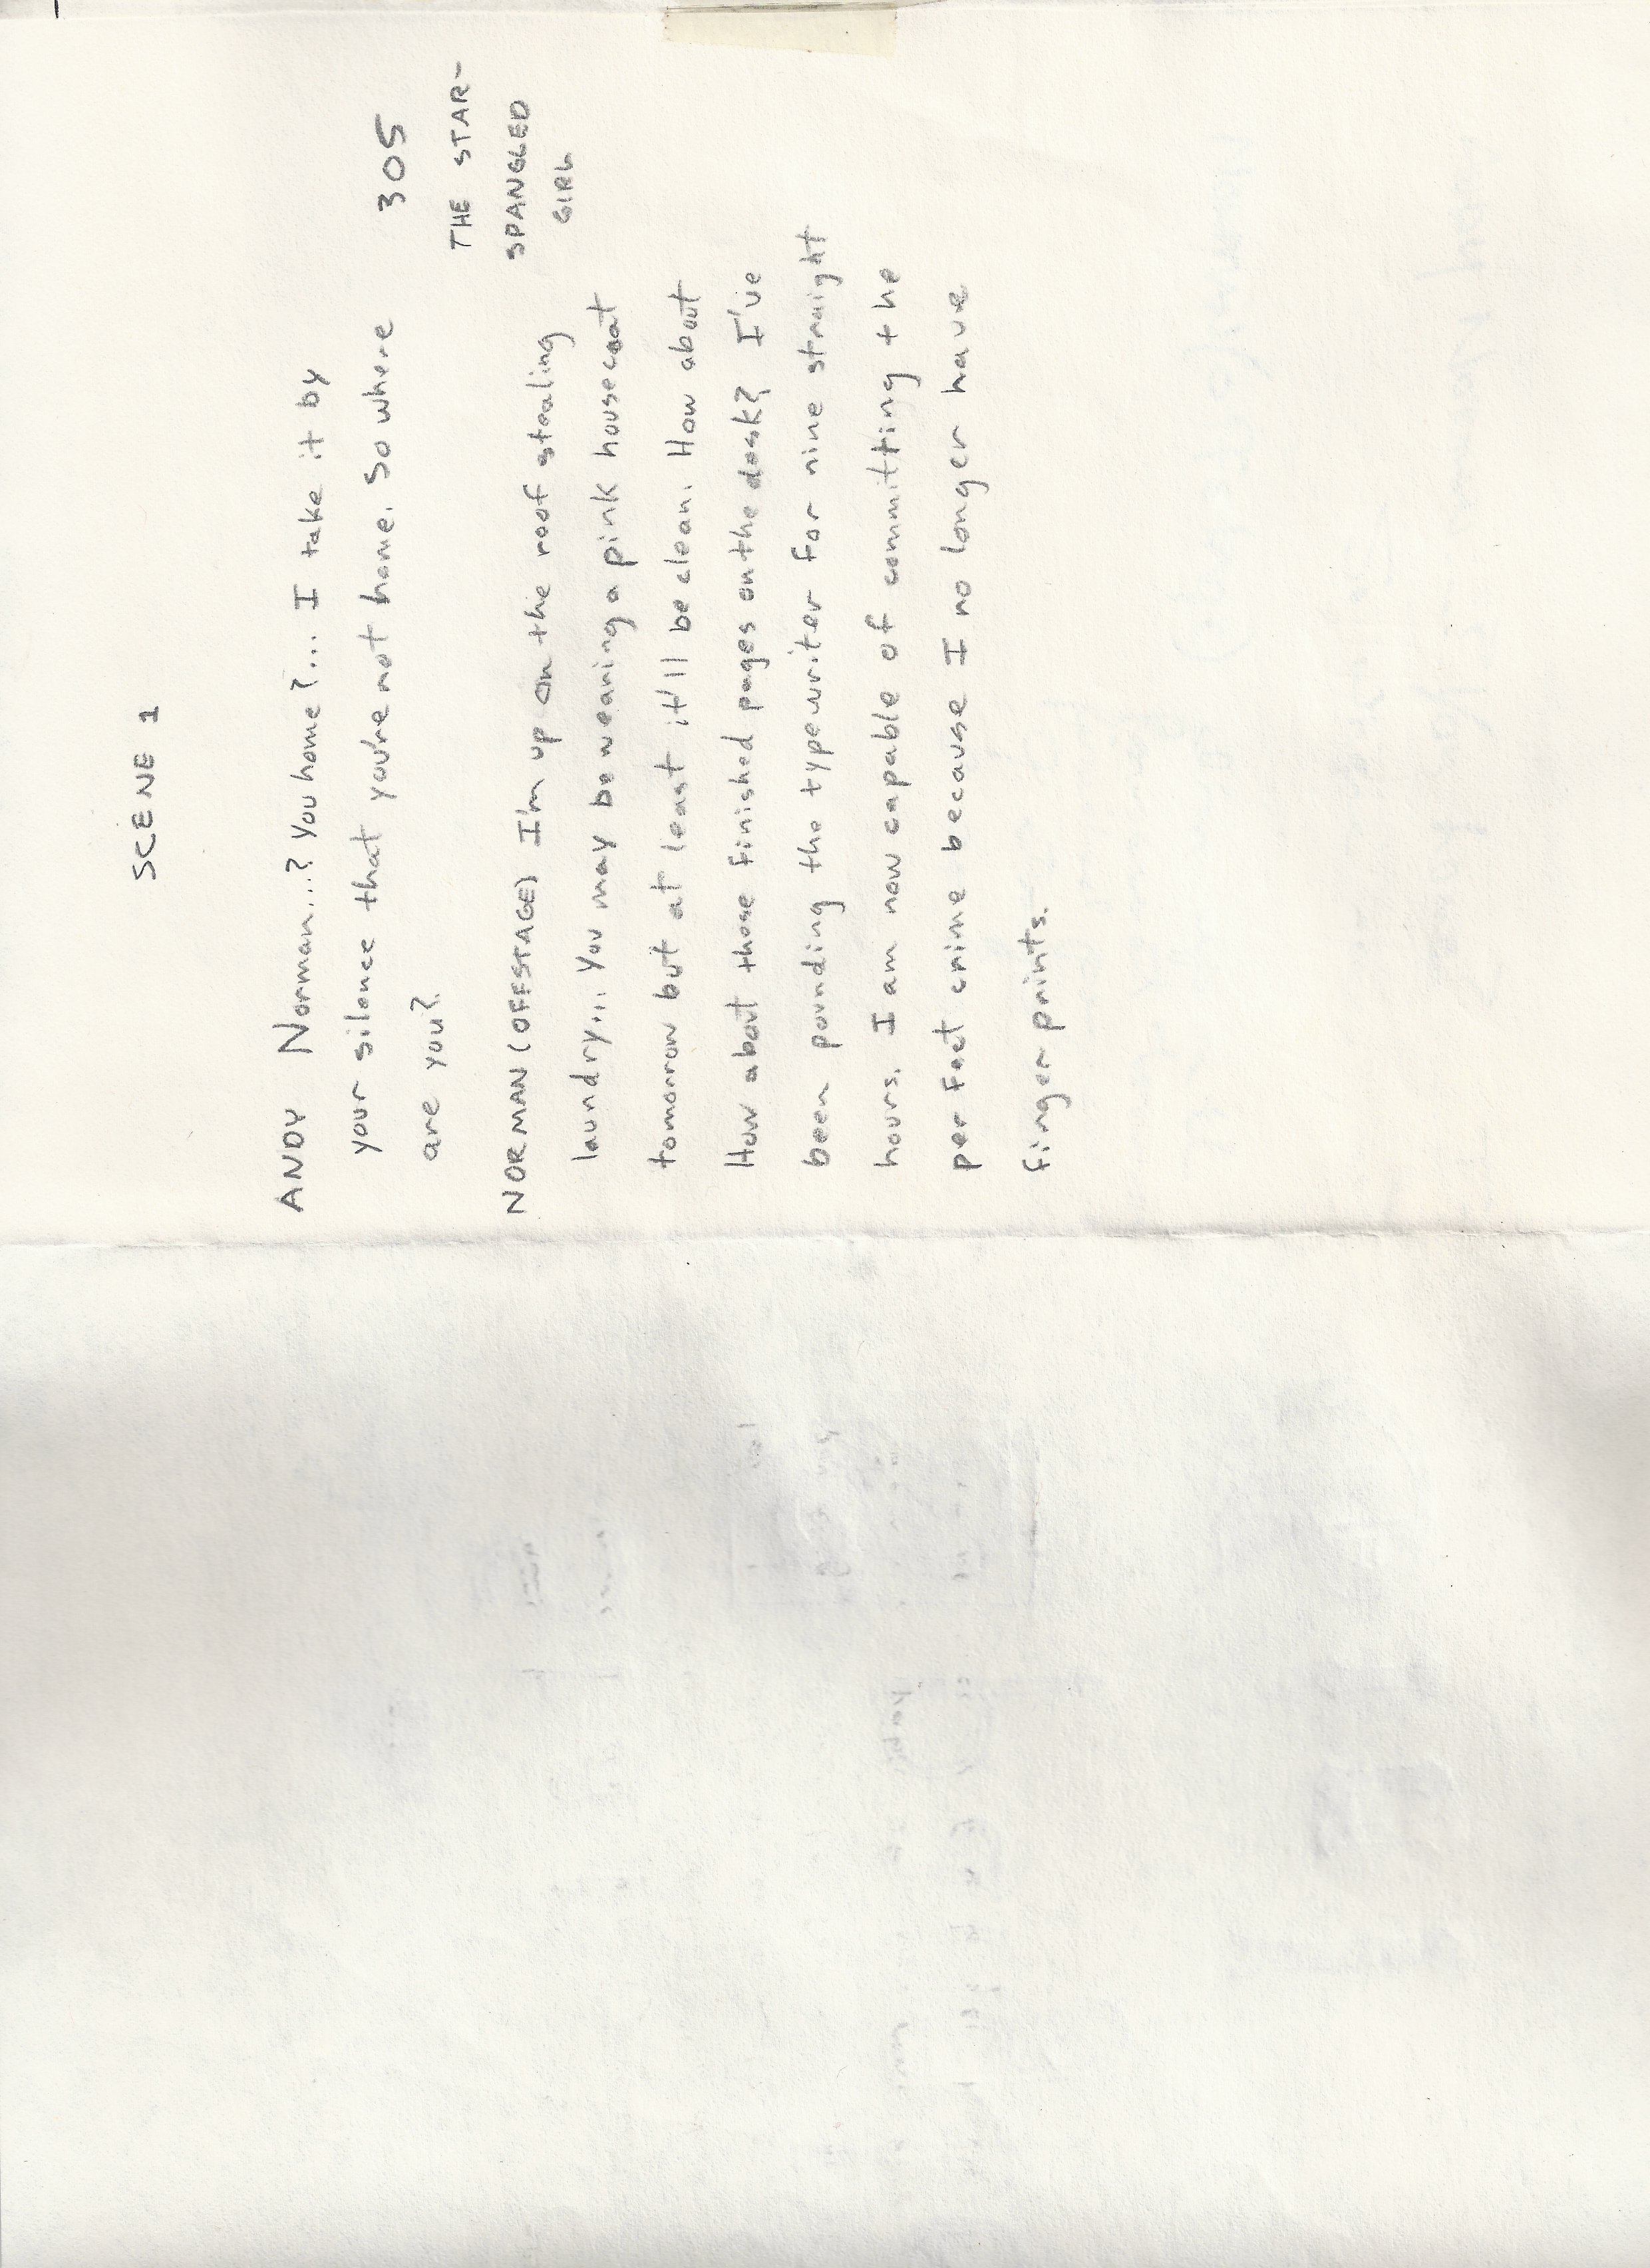 SCENE 1
ANDY Norman...? You home?... I take it by
your silence that you're not home. So where
are you?
305
THE STAR-
SPANGLED
GIRL
NORMAN (OFFSTAGE) I'm up on the roof stealing
laundry.... You may be wearing a pink housecoat
tomorrow but at least it'll be clean. How about
How about those finished pages on the desk? I've
been pounding the typewriter for nine straight
hours. I am now capable of committing the
perfect crime because I no longer have
finger prints.